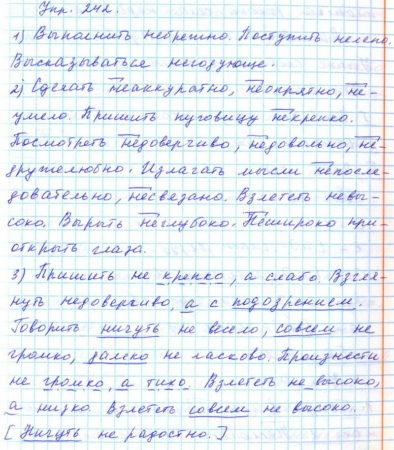 Упр. 242.
1) Выполнить небрежно. Поступить нелепо.
Высказываться негодующе.
2) Сделать неаккуратно, неопрятно, не-
умело. Пришить пуговицу некрепко.
Посмотреть недоверчиво, недовольно, не-
дружелюбно. Излагать мысли непосле-
довательно, несвязано. Взлететь невы-
соко. Вырыть неглубоко. Нешироко при-
открыть глаза.
3) Пришить не крепко, а слабо. Взгля-
нуть недоверчиво, а с подозрением.
Говорить ничуть не весело, совсем не
громко, далеко не ласково. Произнести
не громко, а тихо. Взлететь не высоко,
а низко. Взлететь совсем не высоко.
[Ничуть не радостно.]